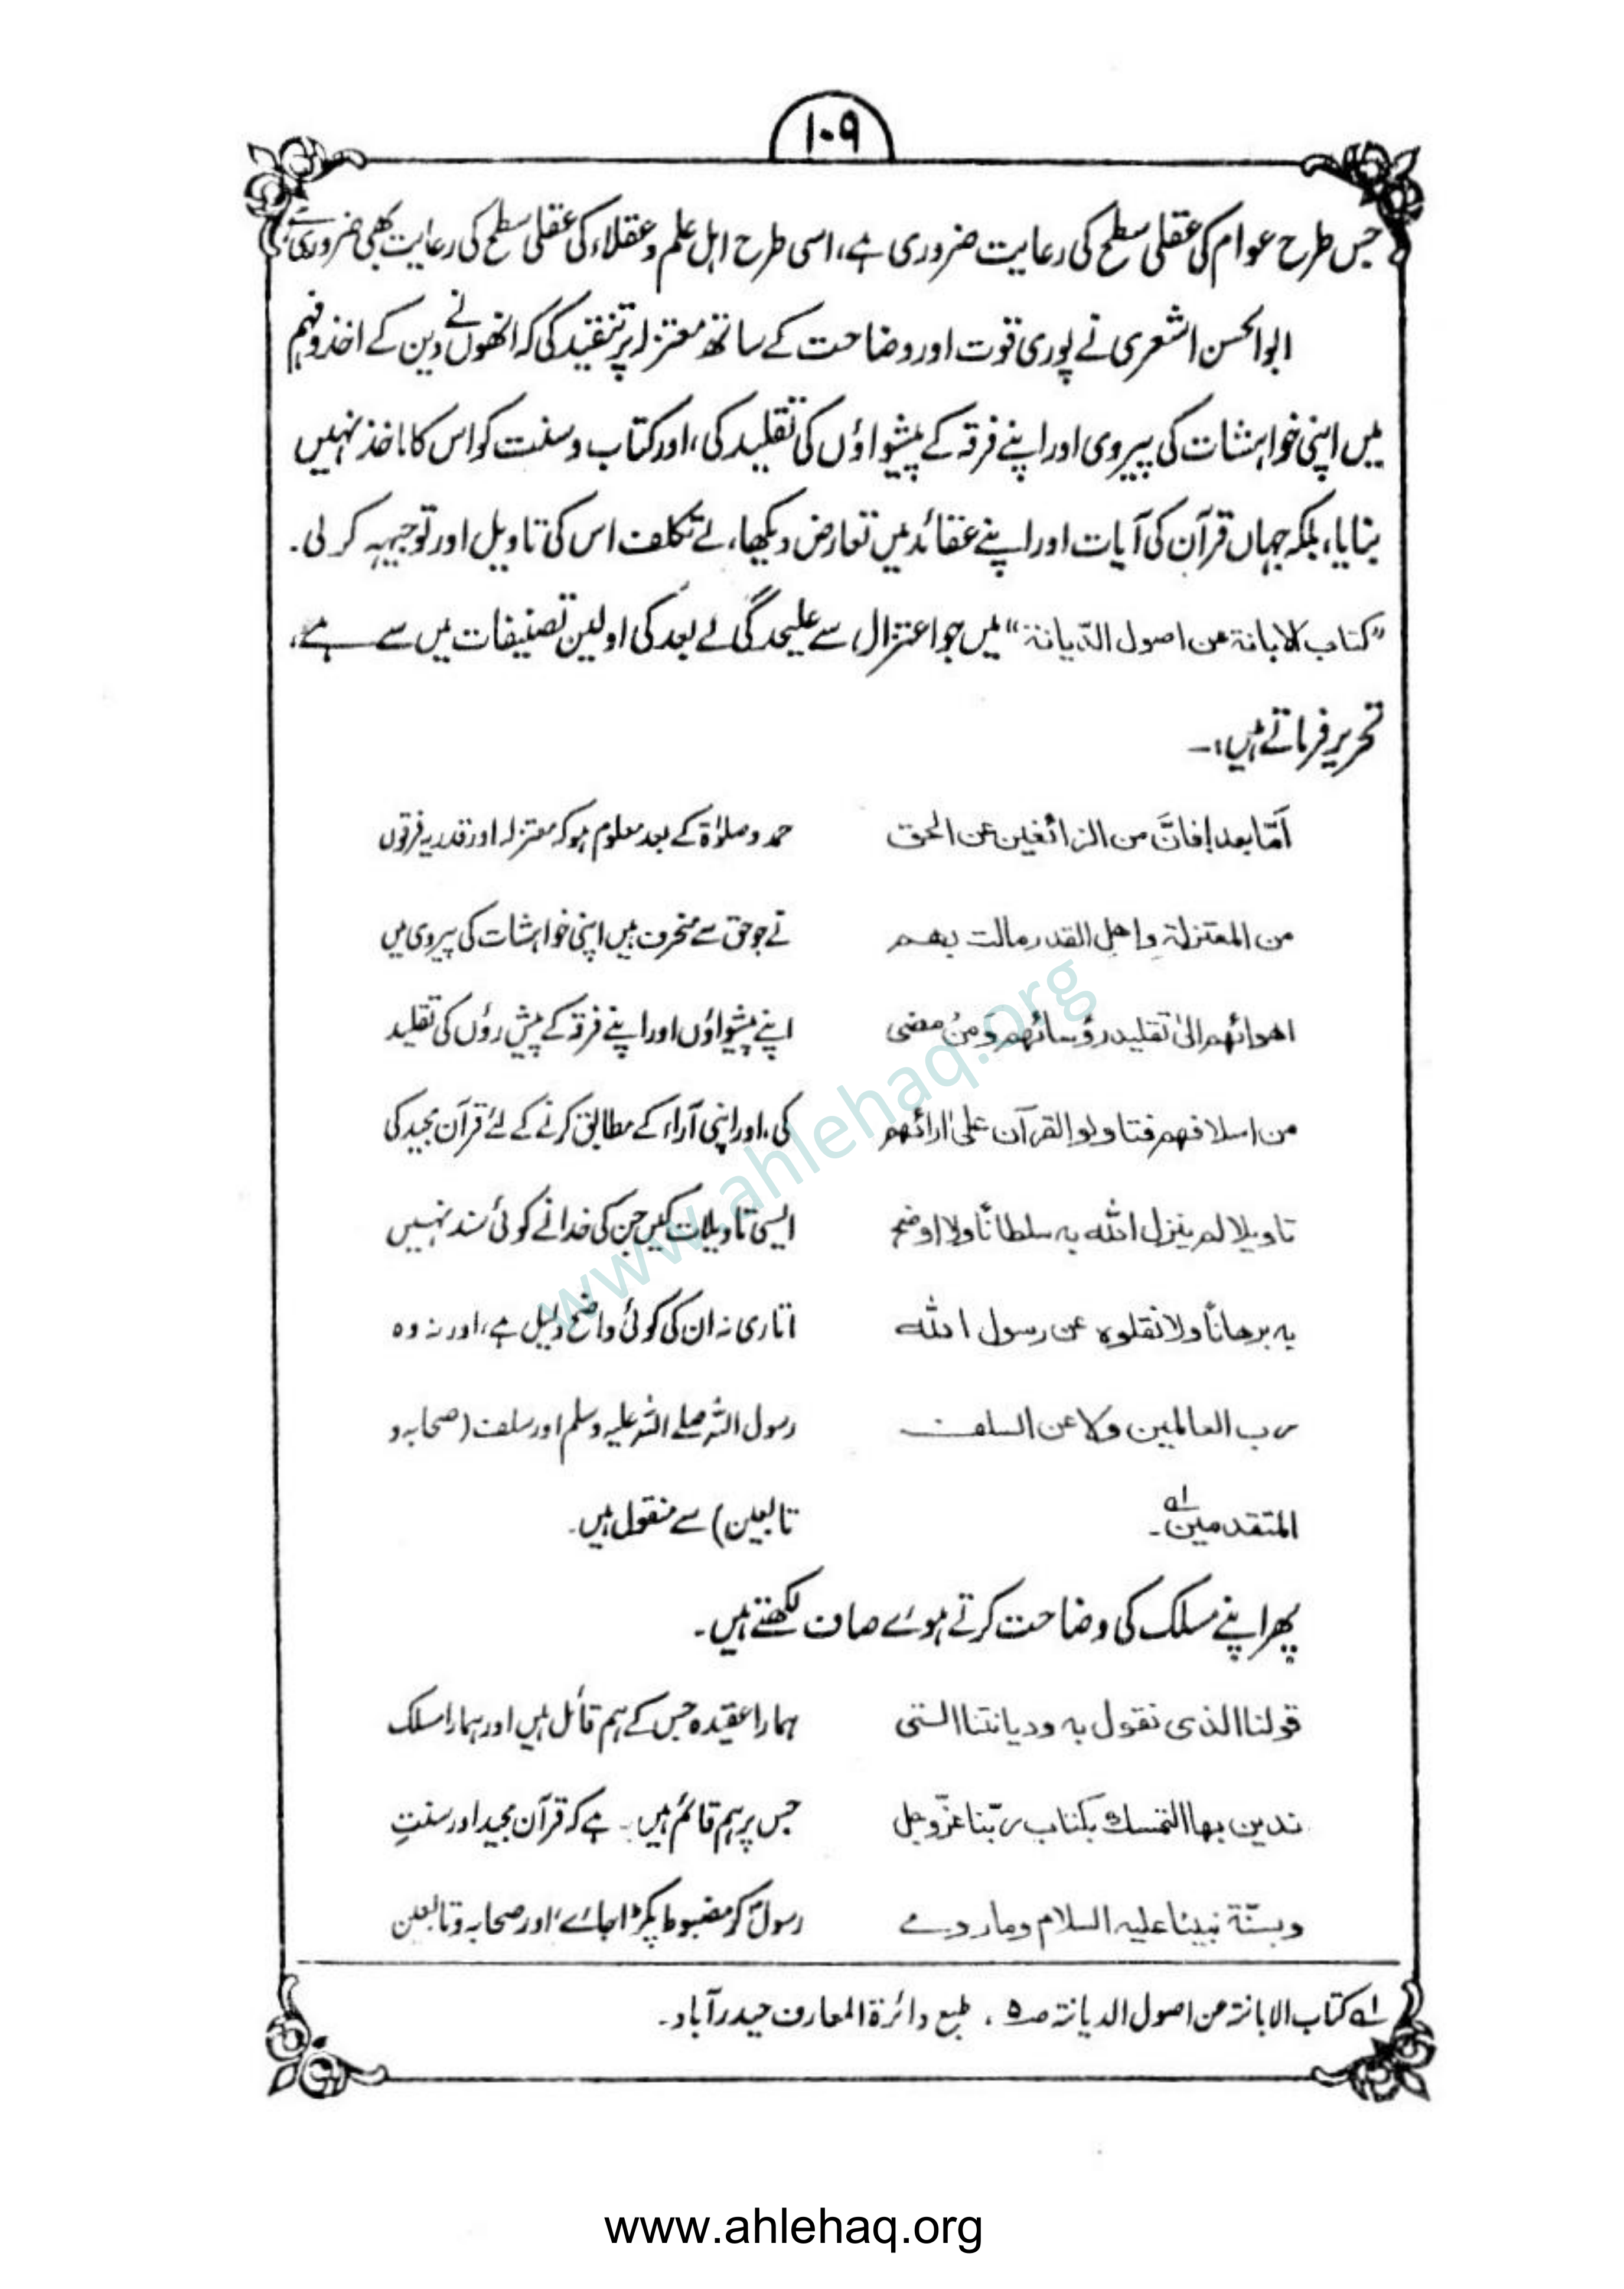 ۱۰۹
جس طرح عوام کی عقلی سطح کی رعایت ضروری ہے، اسی طرح اہل علم و عقلاء کی عقلی سطح کی رعایت بھی ضروری ہے،
ابوالحسن اشعری نے پوری قوت اور وضاحت کے ساتھ معتزلہ پر تنقید کی کہ انھوں نے دین کے اخذ و فہم
میں اپنی خواہشات کی پیروی اور اپنے فرقہ کے پیشواؤں کی تقلید کی، اور کتاب و سنت کو اس کا ماخذ نہیں
بنایا، بلکہ جہاں قرآن کی آیات اور اپنے عقائد میں تعارض دیکھا، بے تکلف اس کی تاویل اور توجیہہ کر لی۔
"کتاب الابانۃ عن اصول الدّیانۃ" میں جو اعتزال سے علیحدگی کے بعد کی اولین تصنیفات میں سے ہے،
تحریر فرماتے ہیں:۔
اَمّا بعد! فانَّ من الزائغین عن الحق
حمد و صلوٰۃ کے بعد معلوم ہو کہ معتزلہ اور قدریہ فرقوں
من المعتزلۃ واھل القدر مالت بھم
نے جو حق سے منحرف ہیں اپنی خواہشات کی پیروی میں
اھوائھم الیٰ تقلید رؤسائھم ومن مضی
اپنے پیشواؤں اور اپنے فرقہ کے پیش رؤں کی تقلید
من اسلافھم فتاولوا القرآن علیٰ ارائھم
کی، اور اپنی آراء کے مطابق کرنے کے لئے قرآن مجید کی
تاویلا لم ینزل اللہ بہ سلطانًا ولا اوضح
ایسی تاویلات کیں جن کی خدا نے کوئی سند نہیں
بہ برھانًا ولا نقلوہ عن رسول اللہ
اتاری نہ ان کی کوئی واضح دلیل ہے، اور نہ وہ
رب العالمین ولا عن السلف
رسول اللہ صلے اللہ علیہ وسلم اور سلف (صحابہ و
المتقدمین۔ ؎۱
تابعین) سے منقول ہیں۔
پھر اپنے مسلک کی وضاحت کرتے ہوئے صاف لکھتے ہیں۔
قولنا الذی نقول بہ ودیانتنا التی
ہمارا عقیدہ جس کے ہم قائل ہیں اور ہمارا مسلک
ندین بھا التمسک بکتاب ربّنا عزّ وجل
جس پر ہم قائم ہیں یہ ہے کہ قرآن مجید اور سنتِ
وبسنّۃ نبینا علیہ السلام وما روے
رسولؐ کو مضبوط پکڑا جائے، اور صحابہ و تابعین
؎۱ کتاب الابانۃ عن اصول الدیانۃ صـ۵، طبع دائرۃ المعارف حیدرآباد۔
www.ahlehaq.org
www.ahlehaq.org